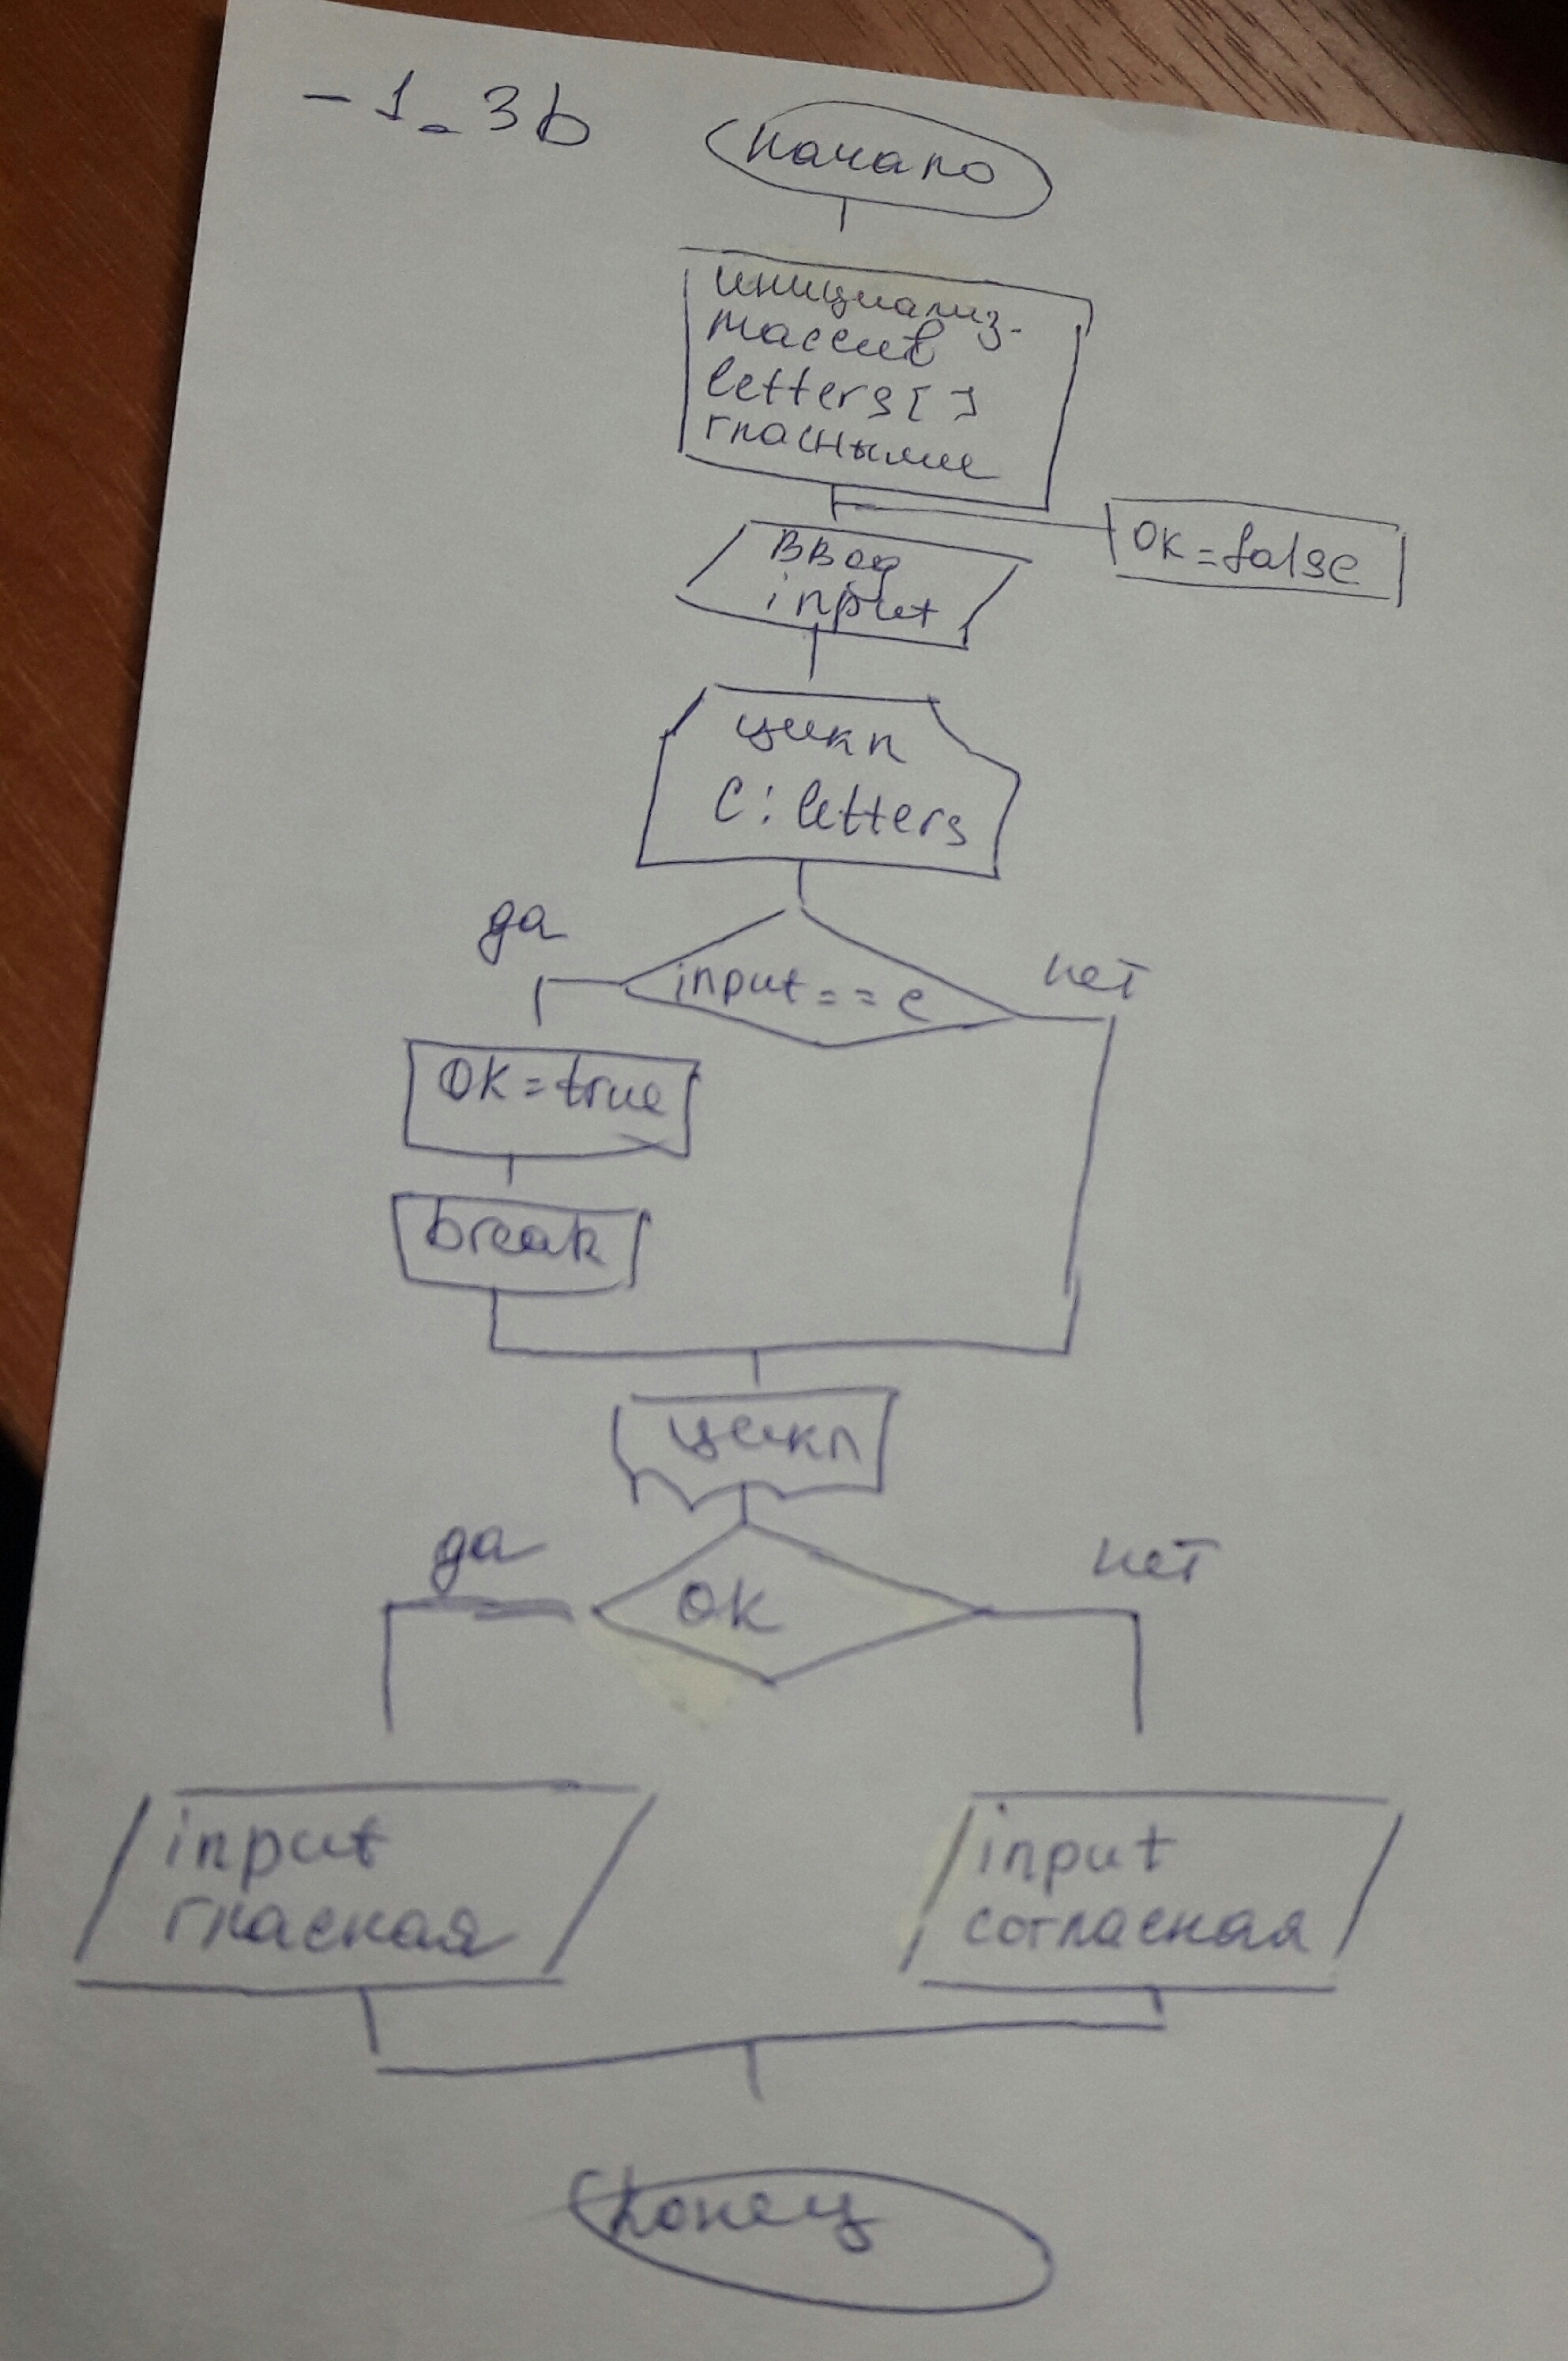 -1_3b
начало
инициализ-
массив
letters[]
гласными
OK=false
Ввод
input
цикл
C:letters
да
нет
input==c
OK=true
break
цикл
да
нет
OK
input
гласная
input
согласная
конец